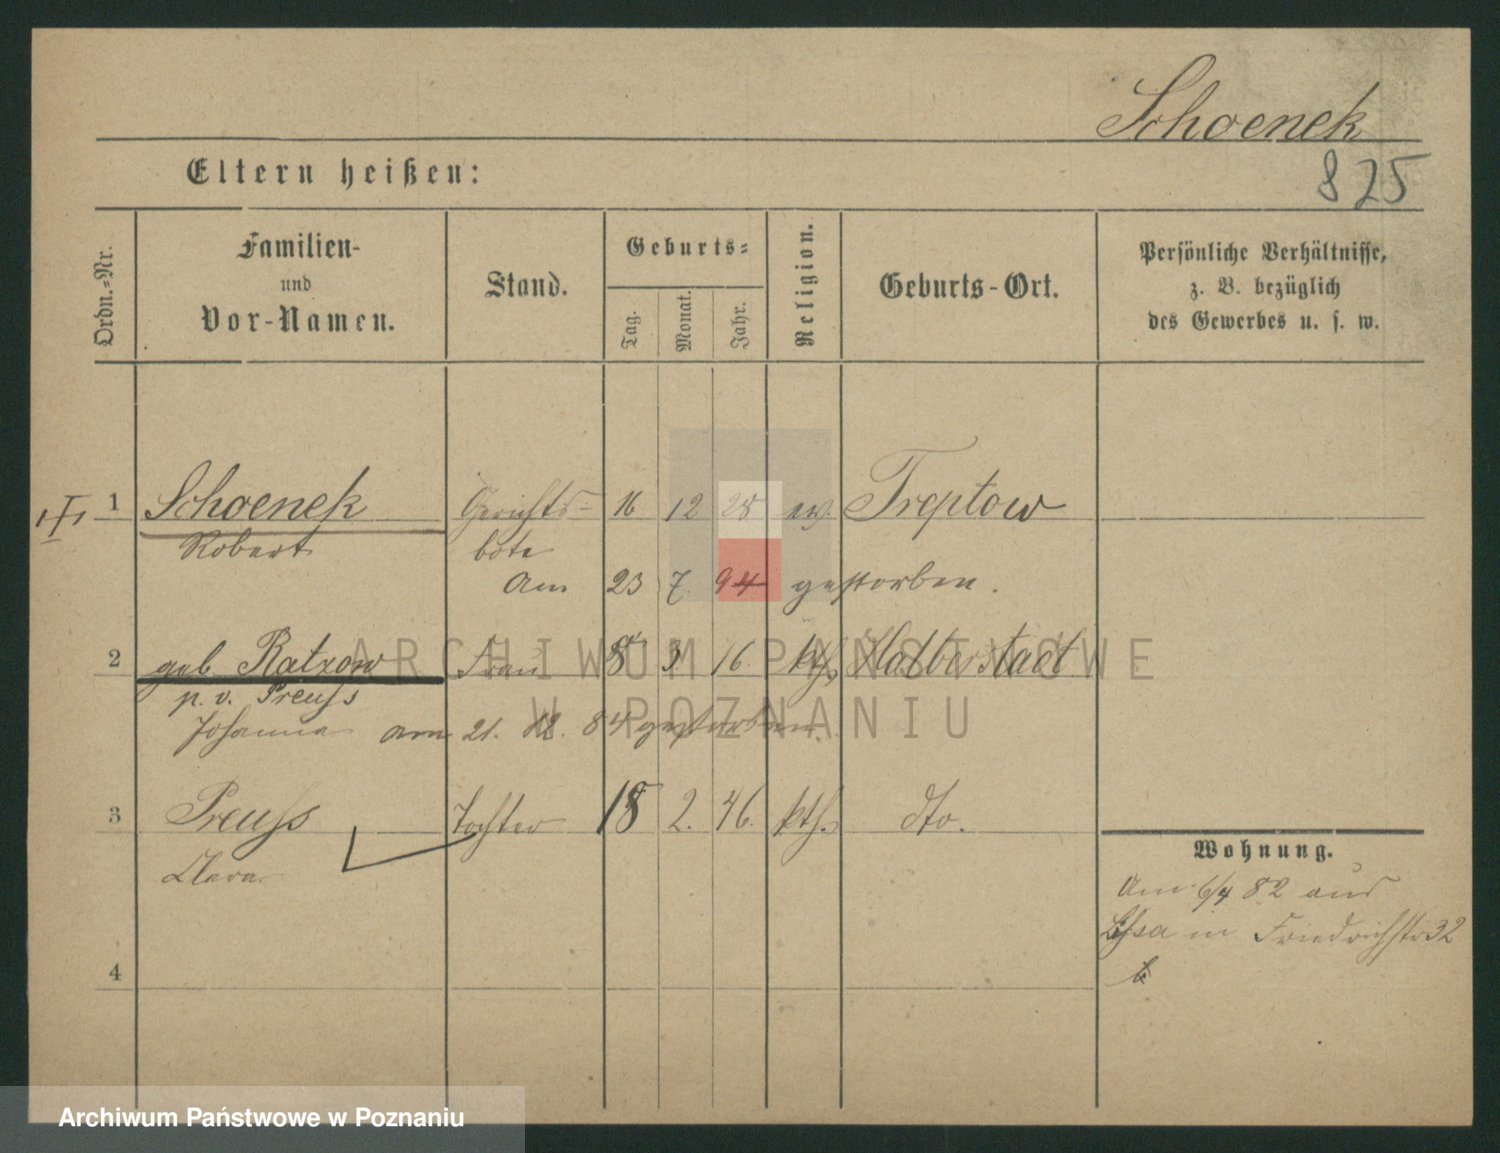 Schoenek
825
Eltern heißen:
Ordn.-Nr.
Familien- und Vor-Namen.
Stand.
Geburts-
Tag.
Monat.
Jahr.
Religion.
Geburts-Ort.
Persönliche Verhältnisse, z. B. bezüglich des Gewerbes u. s. w.
1 Schoenek Gerichts- 16 12 28 ev. Treptow
Robert bote
Am 23 7 94 gestorben.
2 geb. Ratzow Frau 8 3 16. kth. Halberstadt
p. v. Preuss
Johanna am 21. 12. 84 gestorben.
3 Preuss Tochter 18 2. 46. kth. dto.
Clara
Wohnung.
Am 6/4 82 aus
Lissa in Friedrichstr 32
4
ARCHIWUM PAŃSTWOWE
W POZNANIU
Archiwum Państwowe w Poznaniu